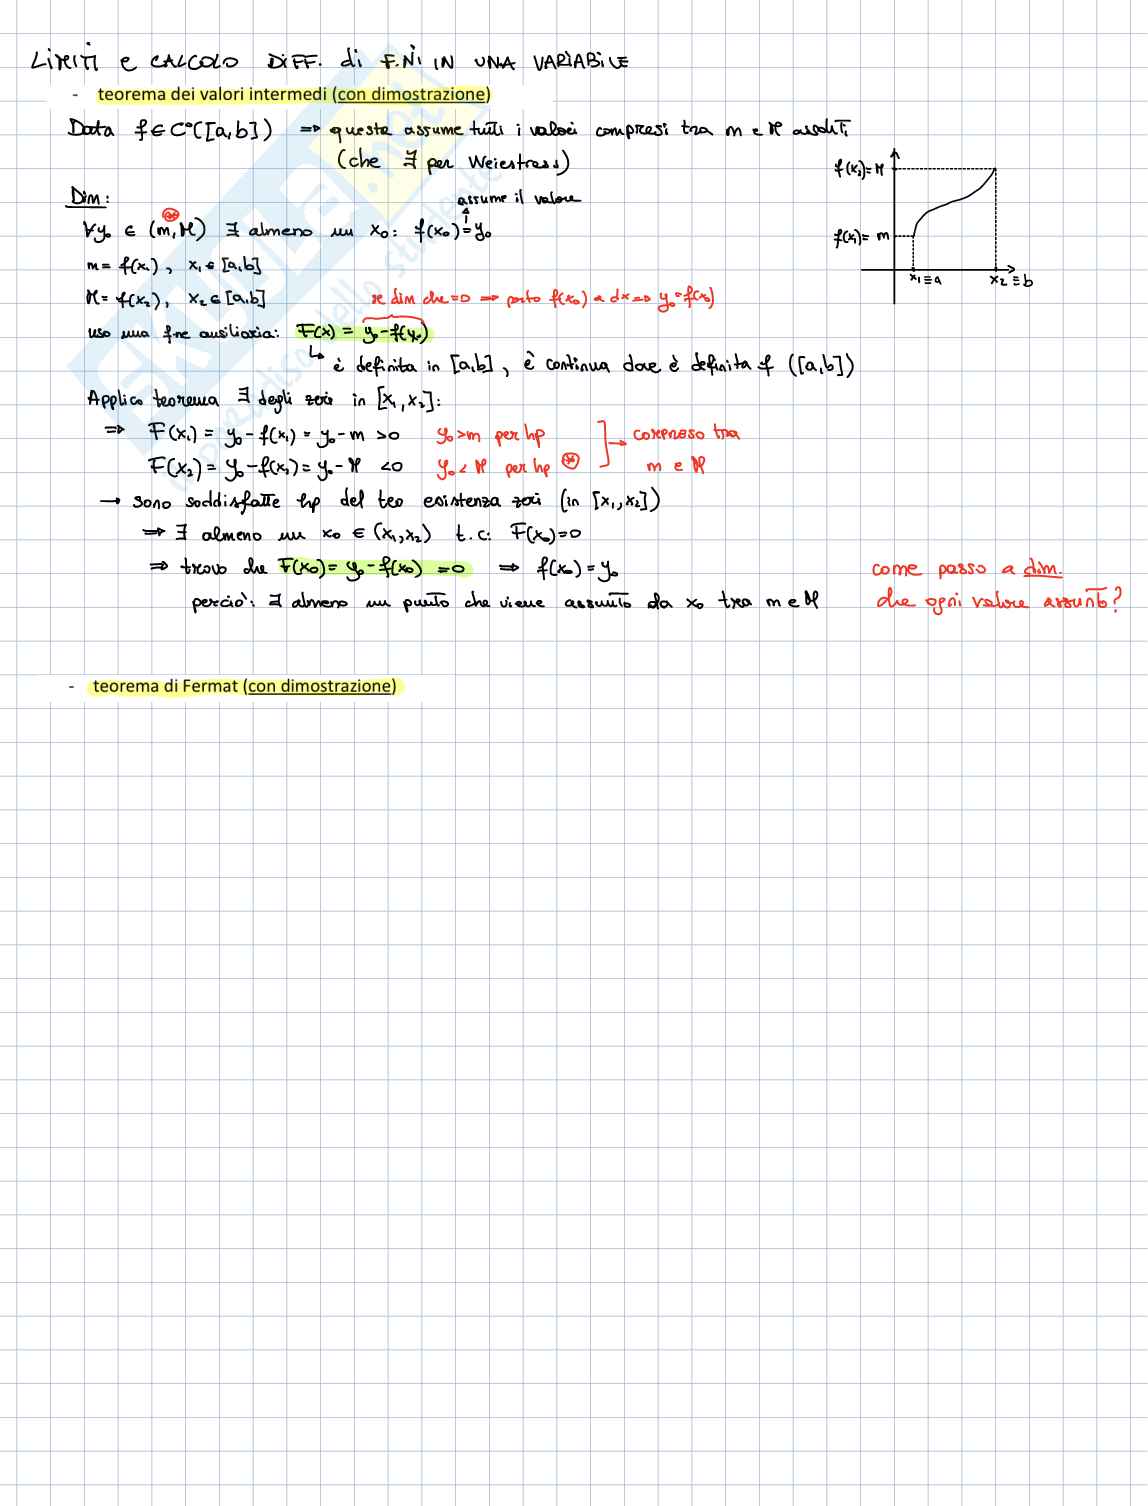 LIMITI e CALCOLO DIFF. di F.NI IN UNA VARIABILE
- teorema dei valori intermedi (con dimostrazione)
Data f ∈ C°([a,b]) ⇒ questa assume tutti i valori compresi tra m e M assoluti
(che ∃ per Weiestrass)
f(x₂)= M
Dim:
assume il valore
∀y₀ ∈ (m,M) ∃ almeno un x₀: f(x₀)=y₀
f(x₁)= m
m= f(x₁), x₁∈ [a,b]
x₁≡a x₂≡b
M= f(x₂), x₂∈ [a,b]
se dim che =0 ⇒ porto f(x₀) a dx ⇒ y₀=f(x₀)
uso una f.ne ausiliaria: F(x) = y₀-f(x₀)
↳ è definita in [a,b], è continua dove è definita f ([a,b])
Applico teorema ∃ degli zeri in [x₁,x₂]:
⇒ F(x₁) = y₀-f(x₁) = y₀-m >0 y₀>m per hp → compreso tra
F(x₂) = y₀-f(x₂)= y₀-M <0 y₀<M per hp m e M
→ sono soddisfatte hp del teo esistenza zeri (in [x₁,x₂])
⇒ ∃ almeno un x₀ ∈ (x₁,x₂) t.c: F(x₀)=0
⇒ trovo che F(x₀)= y₀-f(x₀) =0 ⇒ f(x₀)=y₀ come passo a dim.
perciò: ∃ almeno un punto che viene assunto da x₀ tra m e M che ogni valore assunto?
- teorema di Fermat (con dimostrazione)